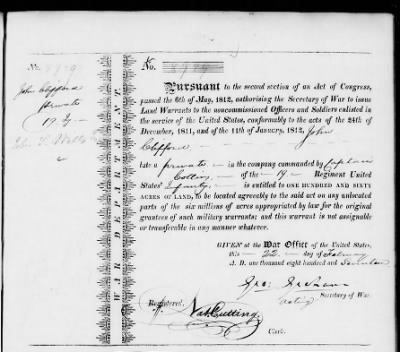 No.
John Clifford
Private
19
No.
Pursuant to the second section of an Act of Congress,
passed the 6th of May, 1812, authorising the Secretary of War to issue
Land Warrants to the uncommissioned Officers and Soldiers enlisted in
the service of the United States, conformably to the acts of the 24th of
December, 1811, and of the 11th of January, 1812, John
Clifford
late a private in the company commanded by Captain
Collins of the 19 Regiment United
States' Infantry is entitled to ONE HUNDRED AND SIXTY
ACRES OF LAND, to be located agreeably to the said act on any unlocated
parts of the six millions of acres appropriated by law for the original
grantees of such military warrants; and this warrant is not assignable
or transferable in any manner whatever.
WAR DEPARTMENT.
GIVEN at the War Office of the United States,
this 22 day of February
A. D. one thousand eight hundred and Seventeen
Geo: Graham
acting Secretary of War.
Registered,
Nat Cutting
Clerk.